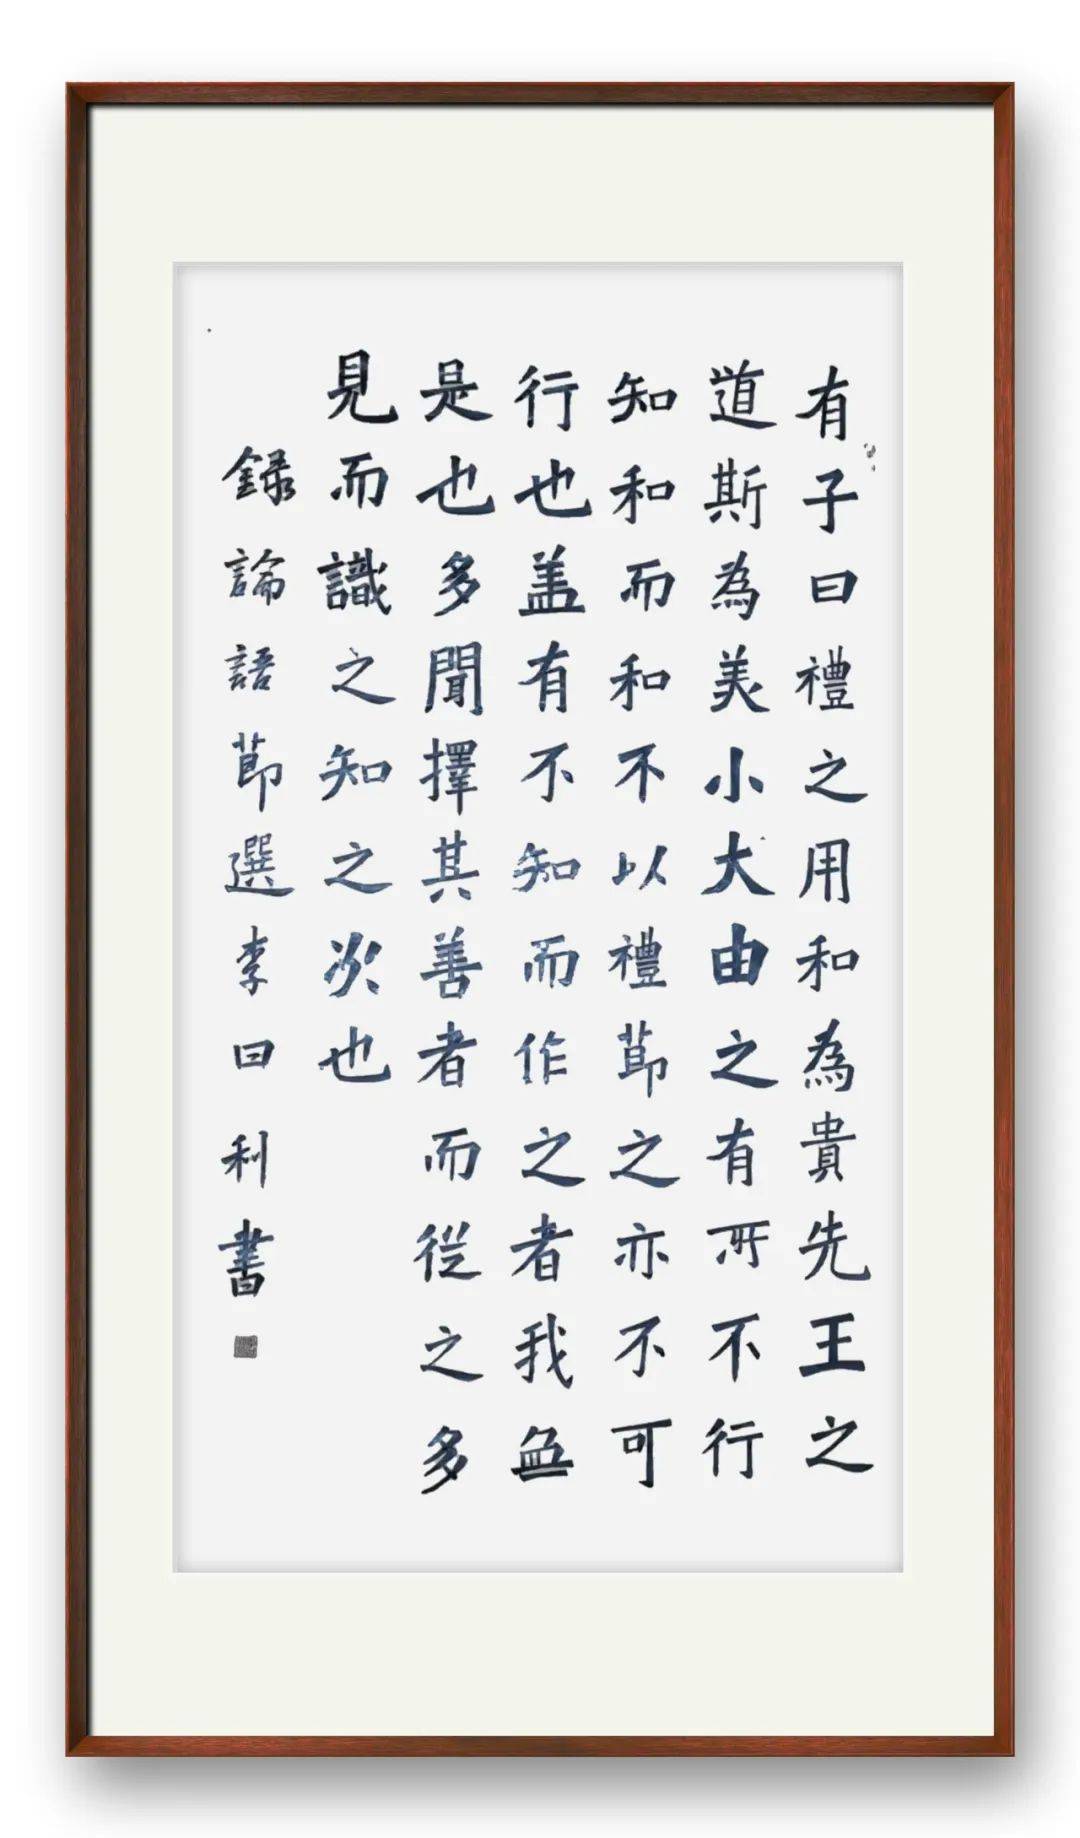 有子曰禮之用和為貴先王之
道斯為美小大由之有所不行
知和而和不以禮節之亦不可
行也盖有不知而作之者我無
是也多聞擇其善者而從之多
見而識之知之次也
録論語節選李曰利書